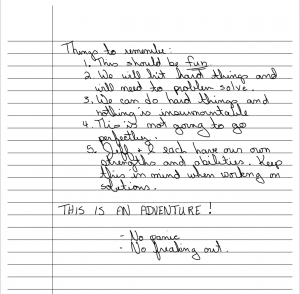 Things to remember:
1. This should be fun
2. We will hit hard things and
will need to problem solve.
3. We can do hard things and
nothing is insurmountable
4. This is not going to go
perfectly.
5. Jeff + I each have our own
strengths and abilities. Keep
this in mind when working on
solutions.
THIS IS AN ADVENTURE!
- No panic
- No freaking out.